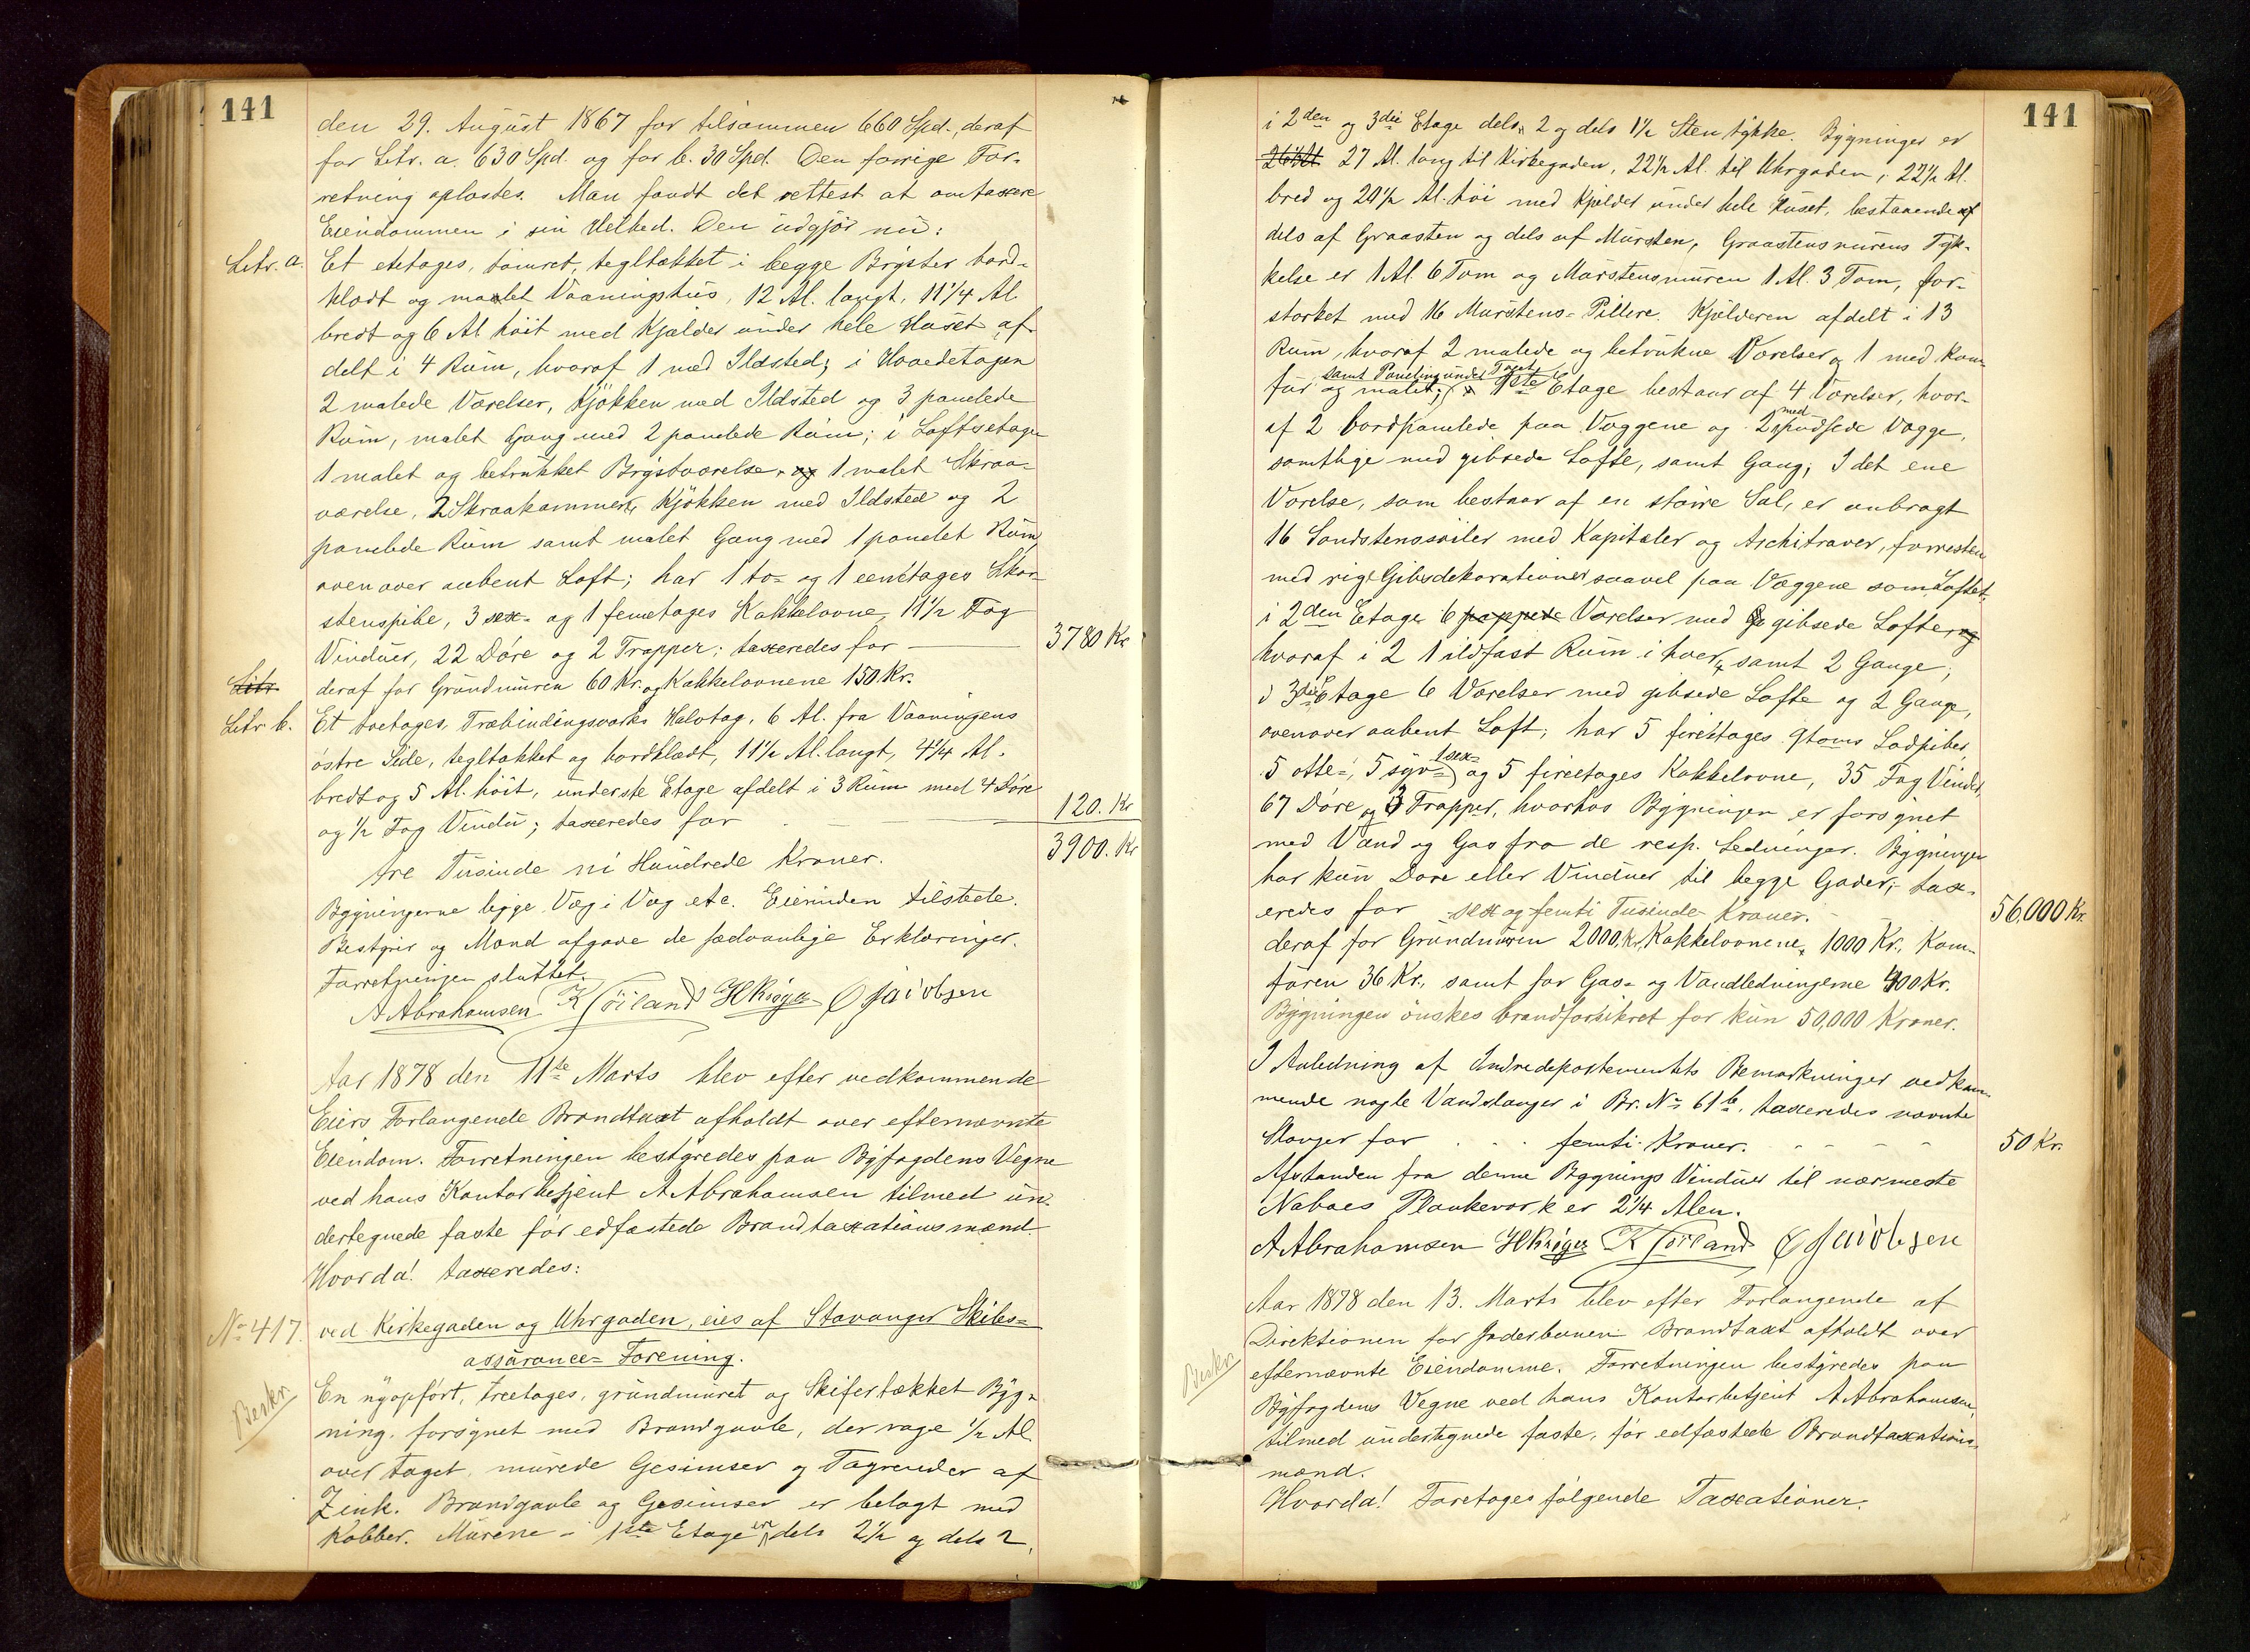 141
den 29. August 1867 for tilsammen 660 Spd., deraf
for Litr. a. 630 Spd. og for b. 30 Spd. Den forrige For-
retning oplæstes. Man fandt det rettest at omtaxere
Eiendommen i sin Helhed. Den udgjør nu:
Litr. a. Et etetages, tømret, tegltækket i begge Bryster bord-
klædt og malet Vaaningshus, 12 Al. langt, 11 1/4 Al.
bredt og 6 Al. høit med Kjælder under hele Huset af-
delt i 4 Rum, hvoraf 1 med Ildsted; i Hovedetagen
2 malede Værelser, Kjøkken med Ildsted og 3 panelede
Rum, malet Gang med 2 panelede Rum; i Loftsetagen
1 malet og betrukket Brystværelse, og 1 malet Skraa-
værelse, 2 Skraakammere, Kjøkken med Ildsted og 2
panelede Rum samt malet Gang med 1 panelet Rum,
ovenover aabent Loft; har 1 to- og 1 eenetages Skor-
stenspibe, 3 sex- og 1 femetages Kakkelovne, 11 1/2 Fag
Vinduer, 22 Døre og 2 Trapper; taxeredes for 3780 Kr
Litr. deraf for Grundmuren 60 Kr. og Kakkelovnene 150 Kr.
Litr b. Et toetages, Træbindingsværks Halvtag, 6 Al. fra Vaaningens
østre Side, tegltækket og bordklædt, 11 1/2 Al. langt, 4 1/4 Al.
bredt og 5 Al. høit, underste Etage afdelt i 3 Rum med 4 Døre
og 1/2 Fag Vindu; taxeredes for 120. Kr
tre Tusinde ni Hundrede Kroner. 3900. Kr
Bygningerne ligge Væg i Væg etc. Eierinden tilstede.
Bestyrer og Mænd afgave de sædvanlige Erklæringer.
Forretningen sluttet.
A Abrahamsen K Tøiland H Krøger O Jacobsen
Aar 1878 den 11te Marts blev efter vedkommende
Eiers Forlangende Brandtaxt afholdt over efternævnte
Eiendom. Forretningen bestyredes paa Byfogdens Vegne
ved hans Kontorbetjent A Abrahamsen tilmed un-
dertegnede faste før edfæstede Brandtaxationsmænd.
Hvorda! taxeredes:
No 417. ved Kirkegaden og Uhrgaden, eies af Stavanger Skibs-
assurance-Forening.
Beskr. En nyopført, treetages, grundmuret og Skifertækket Byg-
ning. forsynet med Brandgavle, der rage 1/2 Al.
over taget, murede Gesimser og Tagrender af
Zink. Brandgavle og Gesimser er belagt med
Kobber. Murene i 1ste Etage ere dels 2 1/2 og dels 2,
141
i 2den og 3die Etage dels 2 og dels 1 1/2 Sten tykke. Bygningen er
27 Al. lang til Kirkegaden, 22 1/2 Al. til Uhrgaden, 22 1/2 Al.
bred og 20 1/2 Al. høi med Kjælder under hele Huset, bestaaende af
dels af Graasten og dels af Mursten, Graastensmurens Tyk-
kelse er 1 Al. 6 Tom og Murstensmuren 1 Al. 3 Tom, for-
stærket med 16 Murstens-Pillere. Kjælderen afdelt i 13
Rum, hvoraf 2 malede og betrukne Værelser og 1 med Kom-
samt Paneling under Taget
fur og malet; 1ste Etage bestaar af 4 Værelser, hvor-
af 2 bordpanelede paa Væggene og 2 med pudsede Vægge,
samtlige med gibsede Lofte, samt Gang; I det ene
Værelse, som bestaar af en større Sal, er anbragt
16 Sandstenssøiler med Kapitæler og Architraver, forresten
med rige Gibsdekorationer saavel paa Væggene som Loftet,
i 2den Etage 6 pappede Værelser med gibsede Lofter, og
hvoraf i 2 1 ildfast Rum i hver, samt 2 Gange;
i 3die Etage 6 Værelser med gibsede Lofte og 2 Gange,
ovenover aabent Loft; har 5 fireetages 9toms Lodpiber,
5 otte-, 5 syv-, 1 sex- og 5 fireetages Kakkelovne, 35 Fag Vinduer,
67 Døre og 3 Trapper, hvorhos Bygningen er forsynet
med Vand og Gas fra de resp. Ledninger. Bygningen
har kun Døre eller Vinduer til begge Gader; tax-
eredes for sex og femti Tusinde Kroner. 56,000 Kr.
deraf for Grundmuren 2000 Kr, Kakkelovnene 1000 Kr., Kom-
furen 36 Kr., samt for Gas- og Vandledningerne 400 Kr.
Bygningen ønskes brandforsikret for kun 50,000 Kroner.
I Anledning af Indredepartementets Bemærkninger vedkom-
mende nogle Vandslanger i Br. No 61b, taxeredes nævnte
Slanger for femti Kroner. 50 Kr.
Afstanden fra denne Bygnings Vinduer til nærmeste
Naboes Plankeværk er 2 1/4 Alen.
A Abrahamsen H Krøger K Tøiland O Jacobsen
Aar 1878 den 13. Marts blev efter Forlangende af
Direktionen for Jæderbanen Brandtaxt afholdt over
Beskr. efternævnte Eiendomme. Forretningen bestyredes paa
Byfogdens Vegne ved hans Kontorbetjent A Abrahamsen,
tilmed undertegnede faste, før edfæstede Brandtaxations-
mænd.
Hvorda! Foretages følgende Taxationer.